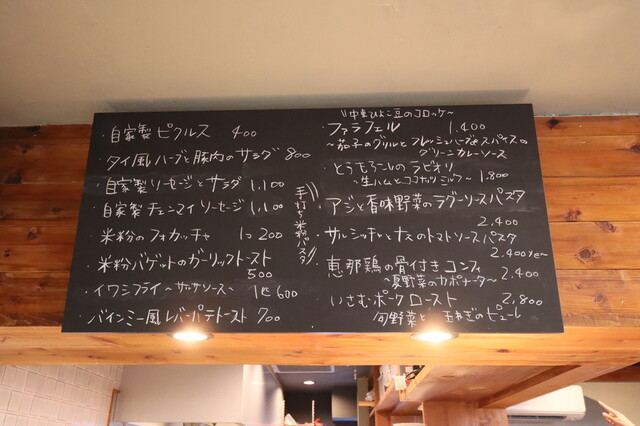 ・自家製ピクルス 400
・タイ風ハーブと豚肉のサラダ 800
・自家製ソーセージとサラダ 1.100
・自家製チェンマイソーセージ 1.100
・米粉のフォカッチャ 1コ 200
・米粉バゲットのガーリックトースト
500
・イワシフライ〜サルサソース〜 1匹 600
・バインミー風レバーパテトースト 700
手打ち米粉パスタ
〜中東ひよこ豆のコロッケ〜
・ファラフェル 1.400
〜茄子のグリルとフレッシュハーブとスパイスの
グリーンカレーソース
・とうもろこしのラビオリ
〜生ハムとココナッツミルク〜 1.800
・アジと香味野菜のラグーソースパスタ
2,400
・サルシッチャとナスのトマトソースパスタ
2.400yen
・恵那鶏の骨付きコンフィ 2,400
〜夏野菜のカポナータ〜
・いさむポークロースト 2,800
旬野菜と 玉ねぎのピューレ